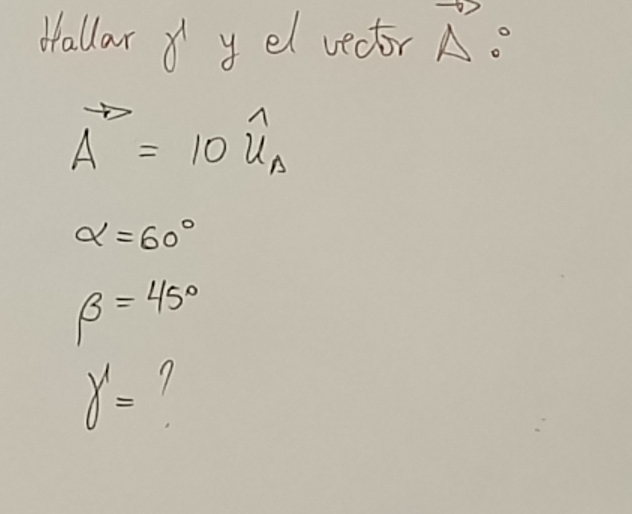 Hallar γ y el vector A⃗ :
A⃗ = 10 û_A
α = 60°
β = 45°
γ = ?